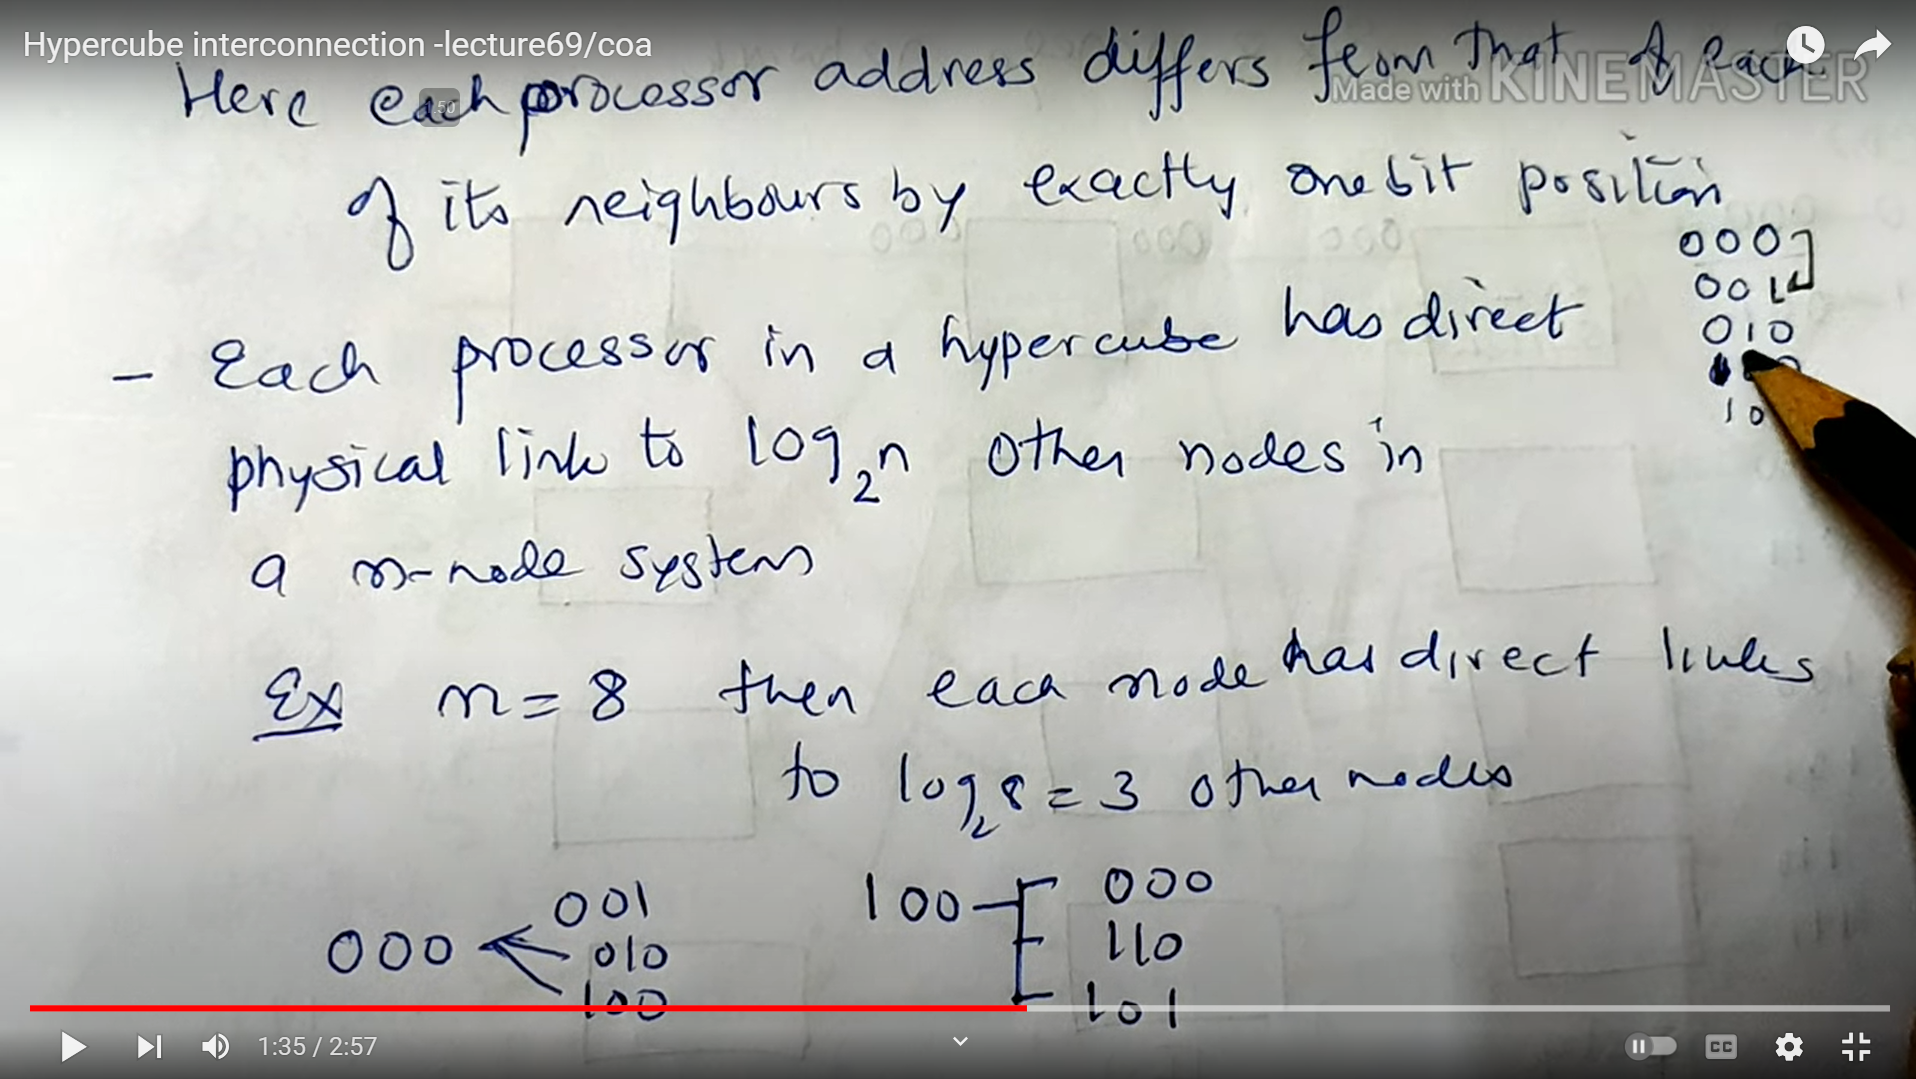 Hypercube interconnection -lecture69/coa
Made with KINEMASTER
Here each processor address differs from that of each
50
of its neighbours by exactly one bit position
000
001
010
10
- Each processor in a hypercube has direct
physical link to log2n other nodes in
a n-node system
Ex n = 8 then each node has direct links
to log2 8 = 3 other nodes
000
001
010
100
100
000
110
101
1:35 / 2:57
CC